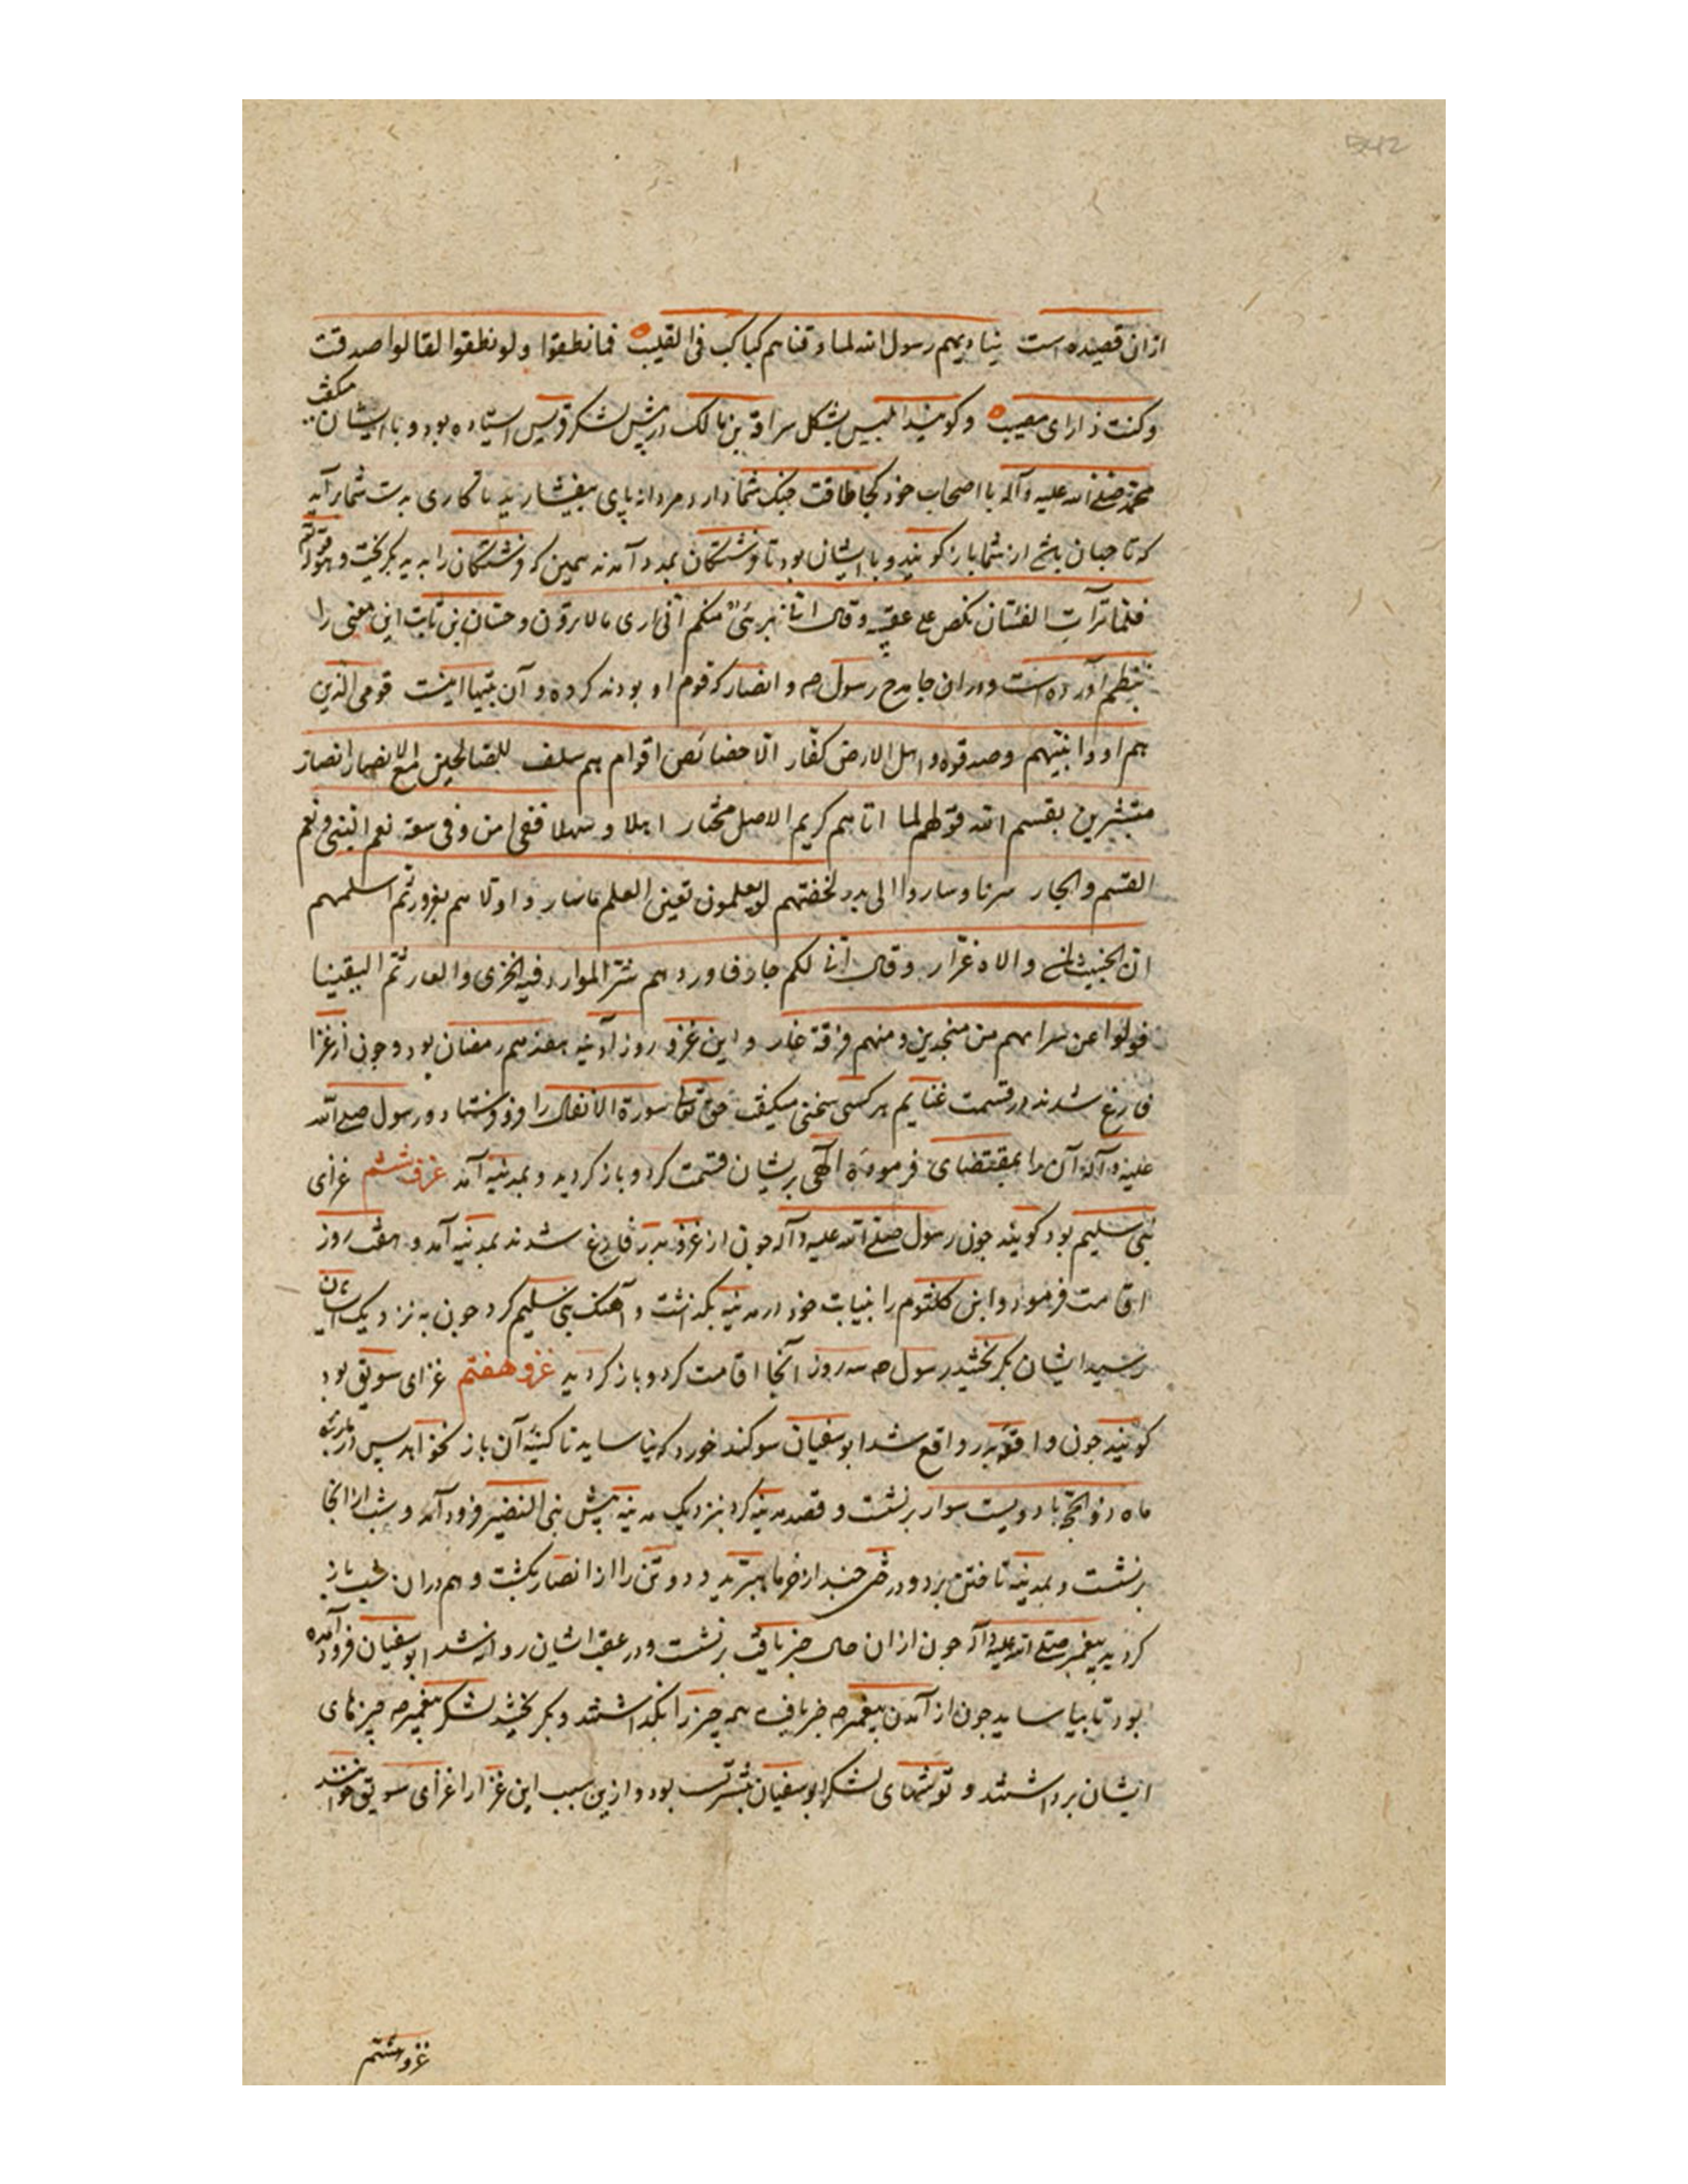 ازان قصیده است ینادیهم رسول الله لما قذفناهم کباکب فی القلیب فما نطقوا ولو نطقوا لقالوا صدقت
وکنت ذا رای مصیب و کویند ابلیس بشکل سراقة بن مالک در پیش لشکر قریش استاده بود و با ایشان میکفت
محمد صلی الله علیه وآله با اصحاب خود کجا طاقت جنک شما دارد مردانه پای بیفشارید تا کاری بدست شما برآید
که تا جهان باشد از شما بازکویند و با ایشان بود تا فرشتکان بمدد آمدند همین که فرشتکان را بدید بکریخت و هو قوله تع
فلما ترآت الفئتان نکص علی عقبیه وقال انی بریء منکم انی اری مالا ترون و حسان بن ثابت این معنی را
بنظم آورده است و دران جا مدح رسول صم و انصار که قوم او بودند کرده و آن بیتها اینست قومی الذین
هم اووا نبیهم وصدقوه واهل الارض کفار الا خصائص اقوام هم سلف للصالحین مع الانصار انصار
مستبشرین بقسم الله قولهم لما اتاهم کریم الاصل مختار اهلا وسهلا ففی امن وفی سعة نعم النبی ونعم
القسم والجار سرنا وساروا الی بدر لحینهم لو یعلمون یقین العلم ما ساروا دلاهم بغرور ثم اسلمهم
ان الخبیث لمن والاه غرار وقال انی لکم جار فاوردهم شر الموارد فیه الخزی والعار ثم التقینا
فولوا عن سراتهم من منجدین ومنهم فرقة غار و این غزو روز آدینه هفدهم رمضان بود و چون از غزا
فارغ شدند در قسمت غنایم هر کسی سخنی میکفت حق تعالی سورة الانفال را فرو فرستاد و رسول صلی الله
علیه وآله آن را بمقتضای فرموده الهی بریشان قسمت کرد و باز کردید و بمدینه آمد غزو ششم غزای
بنی سلیم بود کویند چون رسول صلی الله علیه وآله چون از غزو بدر فارغ شدند بمدینه آمد و هفت روز
اقامت فرمود و ابن کلثوم را بنیابت خود در مدینه بکذاشت و آهنک بنی سلیم کرد چون به نزدیک ایشان
رسید ایشان بکریختند رسول صم سه روز آنجا اقامت کرد و باز کردید غزو هفتم غزای سویق بود
کویند چون واقعه بدر واقع شد ابوسفیان سوکند خورد که نیاساید تا کینه آن باز نخواهد پس در
ماه ذوالحجه با دویست سوار برنشست و قصد مدینه کرد بنزدیک مدینه پیش بنی النضیر فرود آمد و شب از انجا
برنشست و بمدینه تاختن برد و درختی چند از خرما ببرید و دو تن را از انصار بکشت و هم دران شب باز
کردید پیغمبر صلی الله علیه وآله چون ازان حال خبر یافت برنشست و در عقب ایشان روانه شد ابوسفیان فرود آمده
بود تا بیاساید چون از آمدن پیغمبر صم خبر یافت همه چیز را بکذاشتند و بکریختند لشکر پیغمبر صم چیزهای
ایشان برداشتند و توشهای لشکر ابوسفیان بیشتر پست بود و ازین سبب این غزا را غزای سویق خوانند
غزو هشتم